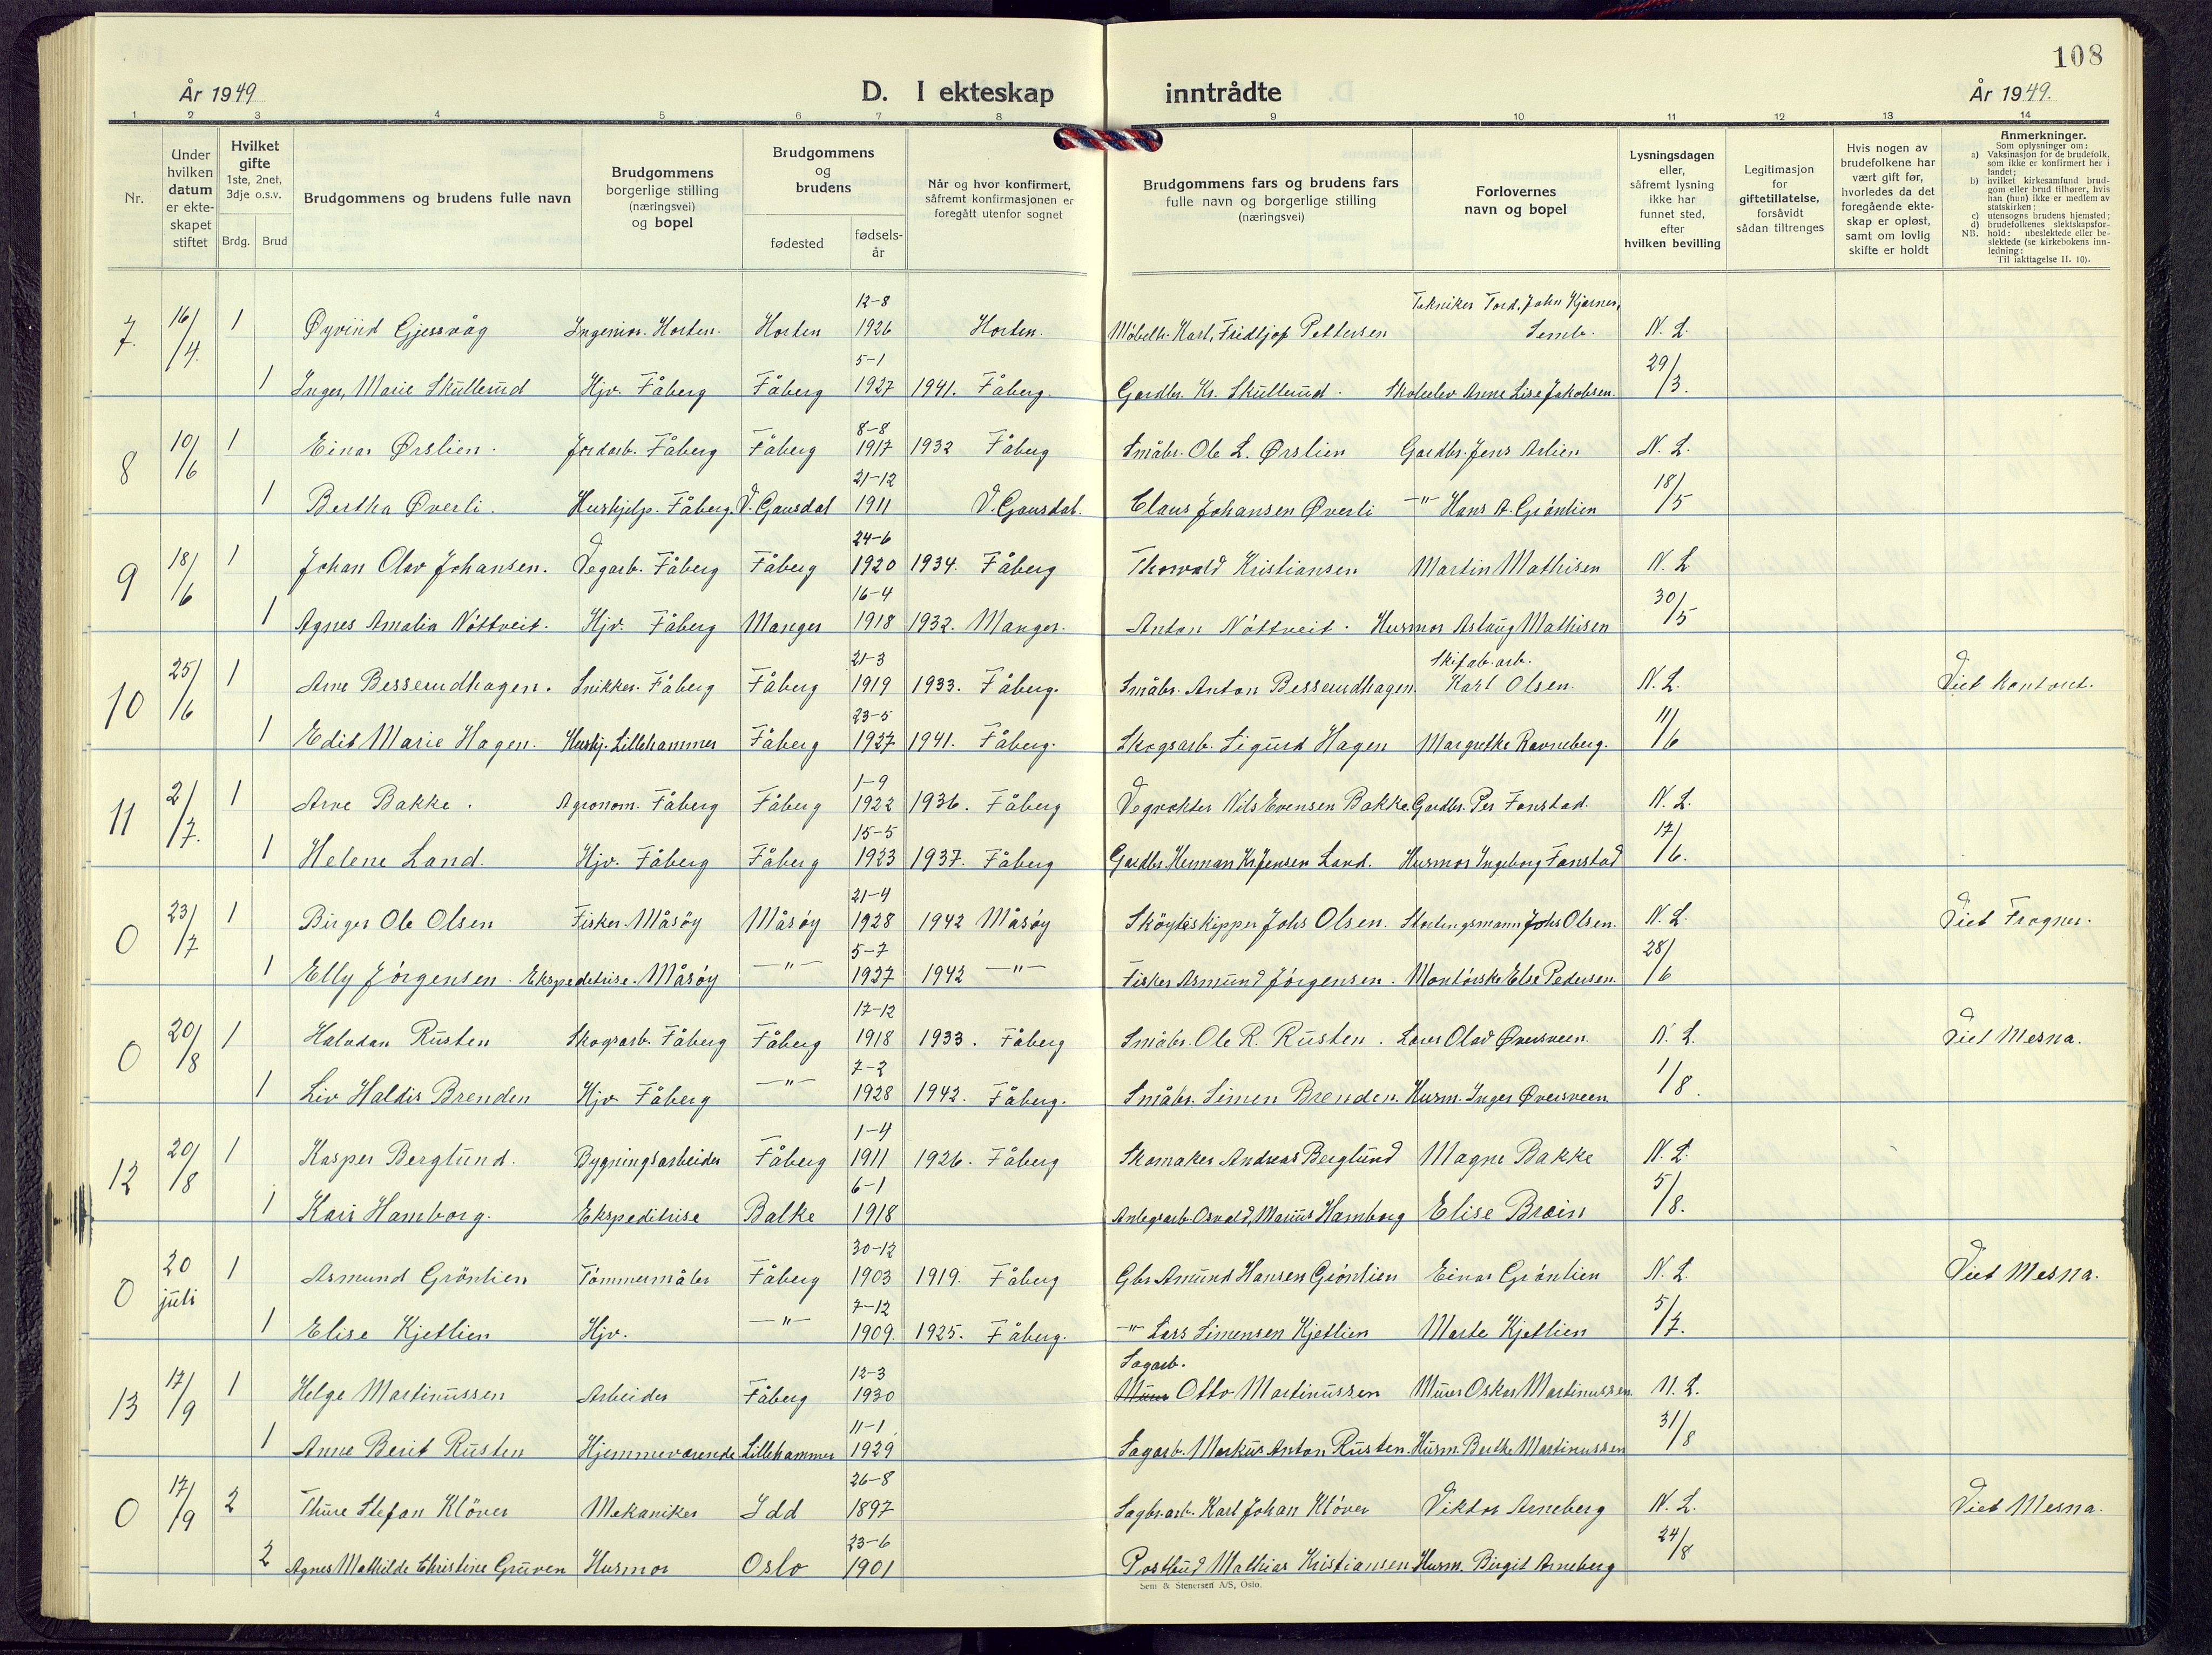 108
År 1949
D. I ekteskap inntrådte
År 1949.
1 2 3 4 5 6 7 8 9 10 11 12 13 14
Nr.
Under hvilken datum er ekteskapet stiftet
Hvilket gifte 1ste, 2net, 3dje o.s.v.
Brdg. Brud
Brudgommens og brudens fulle navn
Brudgommens borgerlige stilling (næringsvei) og bopel
Brudgommens og brudens
fødested
fødsels-år
Når og hvor konfirmert, såfremt konfirmasjonen er foregått utenfor sognet
Brudgommens fars og brudens fars fulle navn og borgerlige stilling (næringsvei)
Forlovernes navn og bopel
Lysningsdagen eller, såfremt lysning ikke har funnet sted, efter hvilken bevilling
Legitimasjon for giftetillatelse, forsåvidt sådan tiltrenges
Hvis nogen av brudefolkene har vært gift før, hvorledes da det foregående ekteskap er opløst, samt om lovlig skifte er holdt
Anmerkninger.
Som oplysninger om:
a) Vaksinasjon for de brudefolk, som ikke er konfirmert her i landet;
b) hvilket kirkesamfund brudgom eller brud tilhører, hvis han (hun) ikke er medlem av statskirken;
c) utensogns brudens hjemsted;
d) brudefolkenes slektskapsforhold: ubeslektede eller beslektede (se kirkebokens innledning:
NB.
Til iakttagelse II. 10).
7. 16/4. 1 Øyvind Gjessvåg Ingeniør. Horten. Horten 12-8 1926 Horten. Møbelh. Karl, Fridtjof Pettersen Tekniker Tord, John Kjærnes, Semb. N. L.
1 Inger, Marie Skullerud Hjv. Fåberg Fåberg 5-1 1927 1941. Fåberg. Gardbr. Kr. Skullerud. Skoleelev Anne Lise Jakobsen. 29/3.
8 10/6 1 Einar Ørslien. Jordarb. Fåberg Fåberg 8-8 1917 1932 Fåberg Småbr. Ole L. Ørslien Gardbr. Jens Aslien N. L.
1 Bertha Øverli. Hushjelp. Fåberg. V. Gausdal 21-12 1911 V. Gausdal. Claus Johansen Øverli -"- Hans A. Grønlien 18/5
9 18/6 1 Johan Olav Johansen. Vegarb. Fåberg Fåberg 24-6 1920 1934. Fåberg Thorvald Kristiansen Martin Mathisen N. L
1 Agnes Amalia Nøttveit. Hjv. Fåberg Manger 16-4 1918 1932. Manger. Anton Nøttveit. Husmor Aslaug Mathisen 30/5
10 25/6 1 Arne Besserudhagen. Snikker. Fåberg Fåberg 21-3 1919 1933. Fåberg. Småbr. Anton Besserudhagen Skifab. arb. Karl Olsen. N. L. Viet kontort.
1 Edit Marie Hagen. Hushj. Lillehammer Fåberg 23-5 1927 1941. Fåberg. Skogsarb. Sigurd Hagen Margrethe Ravneberg. 11/6
11 2/7. 1 Arve Bakke. Agronom. Fåberg Fåberg 1-9 1922 1936. Fåberg Vegvokter Nils Evensen Bakke. Gardbr. Per Fonstad. N. L.
1 Helene Land. Hjv. Fåberg Fåberg 15-5 1923 1937. Fåberg Gardbr. Herman Kr. Jensen Land. Husmor Ingeborg Fonstad 17/6.
0 23/7 1 Birger Ole Olsen Fisker. Måsøy Måsøy 21-4 1928 1942 Måsøy Skøyteskipper Johs Olsen. Stortingsmann Johs Olsen. N. L. Viet Frogner.
1 Elly Jørgensen. Ekspeditrise. Måsøy -"- 5-7 1927 1942 -"- Fisker Asmund Jørgensen. Montørske Else Pedersen. 28/6
0 20/8 1 Halvdan Rusten Skogsarb. Fåberg Fåberg 17-12 1918 1933. Fåberg Småbr. Ole R. Rusten. Lærer Olav Øversveen. N. L. Viet Mesna.
1 Liv Haldis Brenden Hjv Fåberg -"- 7-2 1928 1942. Fåberg. Småbr. Simen Brenden. Husm. Inger Øversveen 1/8.
12 20/8 1 Kasper Berglund. Bygningsarbeider Fåberg 1-4 1911 1926. Fåberg Skomaker Andreas Berglund Magne Bakke N. L.
1 Kari Hamborg. Ekspeditrise Balke 6-1 1918 Anlegsarb. Osvald, Marius Hamborg Elise Bræin 5/8.
0 20 juli 1 Asmund Grönlien Tømmermåler Fåberg 30-12 1903 1919. Fåberg Gbr. Amund Hansen Grønlien Einar Grønlien N. L. Viet Mesna.
1 Elise Kjetlien Hjv. -"- 7-12 1909. 1925. Fåberg. -"- Lars Simensen Kjetlien Marte Kjetlien 5/7.
13 17/9 1 Helge Martinussen Arbeider Fåberg 12-3 1930 Sagarb. Murer Otto Martinussen Murer Oskar Martinussen N. L.
1 Anne Berit Rusten Hjemmeværende Lillehammer 11-1 1929 Sagarb. Markus Anton Rusten. Husm. Berthe Martinussen 31/8
0 17/9 2 Thure Stefan Klöver Mekaniker Idd 26-8 1897 Sagbr.arb. Karl Johan Kløver Viktor Arneberg N. L. Viet Mesna.
2 Agnes Mathilde Christine Gruven Husmor Oslo 23-6 1901 Postbud Mathias Kristiansen Husm. Birgit Arneberg 24/8
Sem & Stenersen A/S, Oslo.